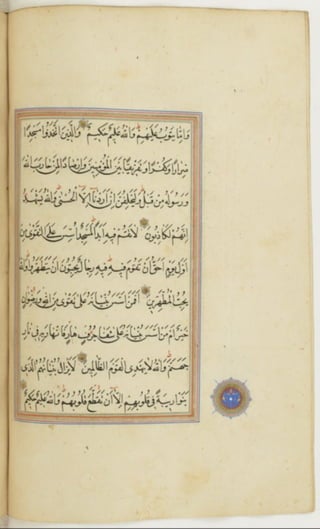 وَإِمَّا يَتُوبُ عَلَيْهِمْ وَاللَّهُ عَلِيمٌ حَكِيمٌ وَالَّذِينَ اتَّخَذُوا مَسْجِدًا
ضِرَارًا وَكُفْرًا وَتَفْرِيقًا بَيْنَ الْمُؤْمِنِينَ وَإِرْصَادًا لِمَنْ حَارَبَ اللَّهَ
وَرَسُولَهُ مِنْ قَبْلُ وَلَيَحْلِفُنَّ إِنْ أَرَدْنَا إِلَّا الْحُسْنَى وَاللَّهُ يَشْهَدُ
إِنَّهُمْ لَكَاذِبُونَ لَا تَقُمْ فِيهِ أَبَدًا لَمَسْجِدٌ أُسِّسَ عَلَى التَّقْوَى مِنْ
أَوَّلِ يَوْمٍ أَحَقُّ أَنْ تَقُومَ فِيهِ فِيهِ رِجَالٌ يُحِبُّونَ أَنْ يَتَطَهَّرُوا وَاللَّهُ
يُحِبُّ الْمُطَّهِّرِينَ أَفَمَنْ أَسَّسَ بُنْيَانَهُ عَلَى تَقْوَى مِنَ اللَّهِ وَرِضْوَانٍ
خَيْرٌ أَمْ مَنْ أَسَّسَ بُنْيَانَهُ عَلَى شَفَا جُرُفٍ هَارٍ فَانْهَارَ بِهِ فِي نَارِ
جَهَنَّمَ وَاللَّهُ لَا يَهْدِي الْقَوْمَ الظَّالِمِينَ لَا يَزَالُ بُنْيَانُهُمُ الَّذِي
بَنَوْا رِيبَةً فِي قُلُوبِهِمْ إِلَّا أَنْ تَقَطَّعَ قُلُوبُهُمْ وَاللَّهُ عَلِيمٌ حَكِيمٌ